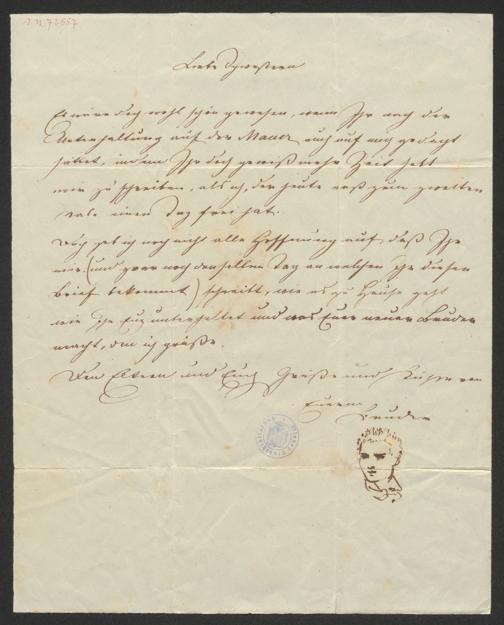 I.N. 73557
Liebe Schwestern
Es wäre doch wohl schön gewesen, wenn Ihr nach der
Unterhaltung auf der Mauer auch auf mich gedacht
hättet, indem Ihr doch gewiß mehr Zeit habt
mir zu schreiben, als ich, der heute erst zum zweiten
Male einen Tag frei hat.
Doch geb ich noch nicht alle Hoffnung auf, daß Ihr
mir (und zwar noch denselben Tag an welchem Ihr diesen
Brief bekommt) schreibt, wie es zu Hause geht
wie Ihr Euch unterhaltet und was Euer neuer Bruder
macht, den ich grüße.
Den Eltern und Euch Grüße und Küsse von
Eurem
Bruder